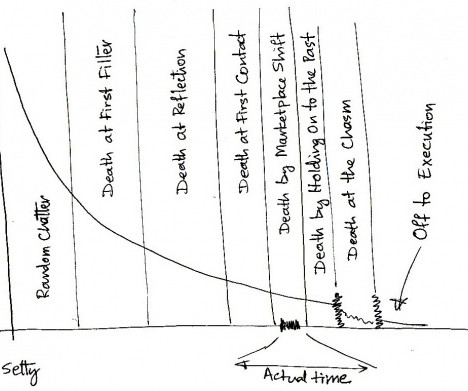 Random Chatter
Death at First Filter
Death at Reflection
Death at First Contact
Death by Marketplace Shift
Death by Holding On to the Past
Death at the Chasm
Off to Execution
Setty
Actual time